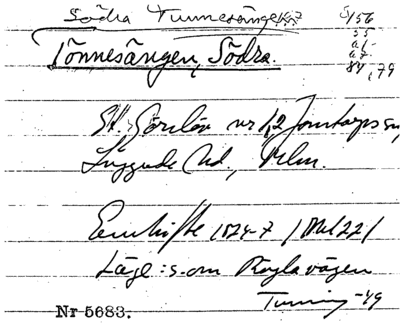 Södra Tunnesängen 5/56
55
Tönnesängen, Södra.
84, 79
St. Görslöv nr 1,2 Jonstorps sn,
Luggude hd, Mlm.
Enskifte 1824-7 /Akt 22/
Läge: s. om Rögla vägen
Tuning -49
Nr 5683.